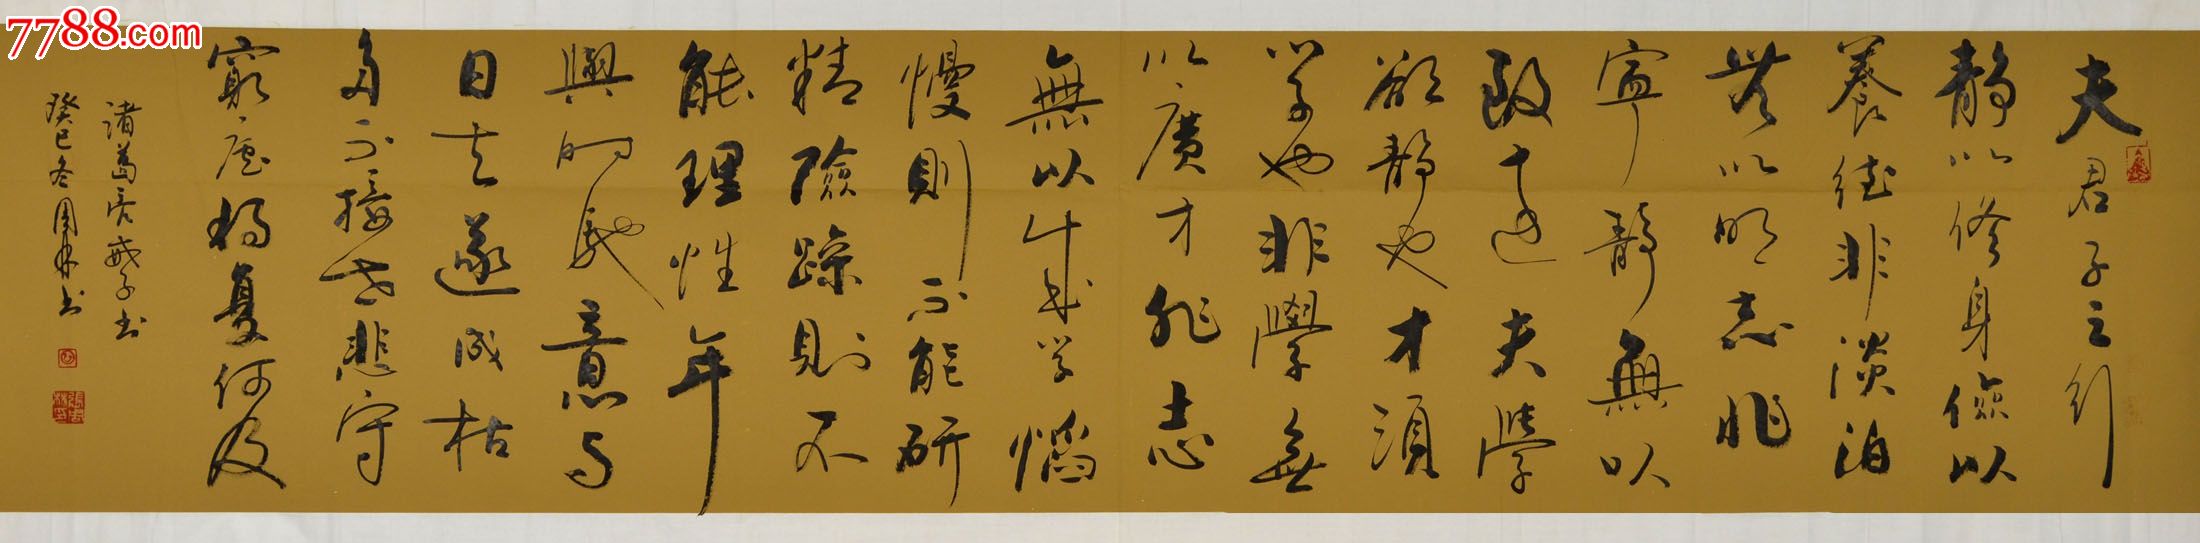 7788.com
夫君子之行
静以修身儉以
養德非淡泊
無以明志非
寧静無以
致遠夫學
欲静也才須
学也非學無
以廣才非志
無以成学慆
慢則不能研
精險躁則不
能理性年
與時馳意与
日去遂成枯
多不接世悲守
窮廬將復何及
諸葛亮戒子书
癸巳冬国林书